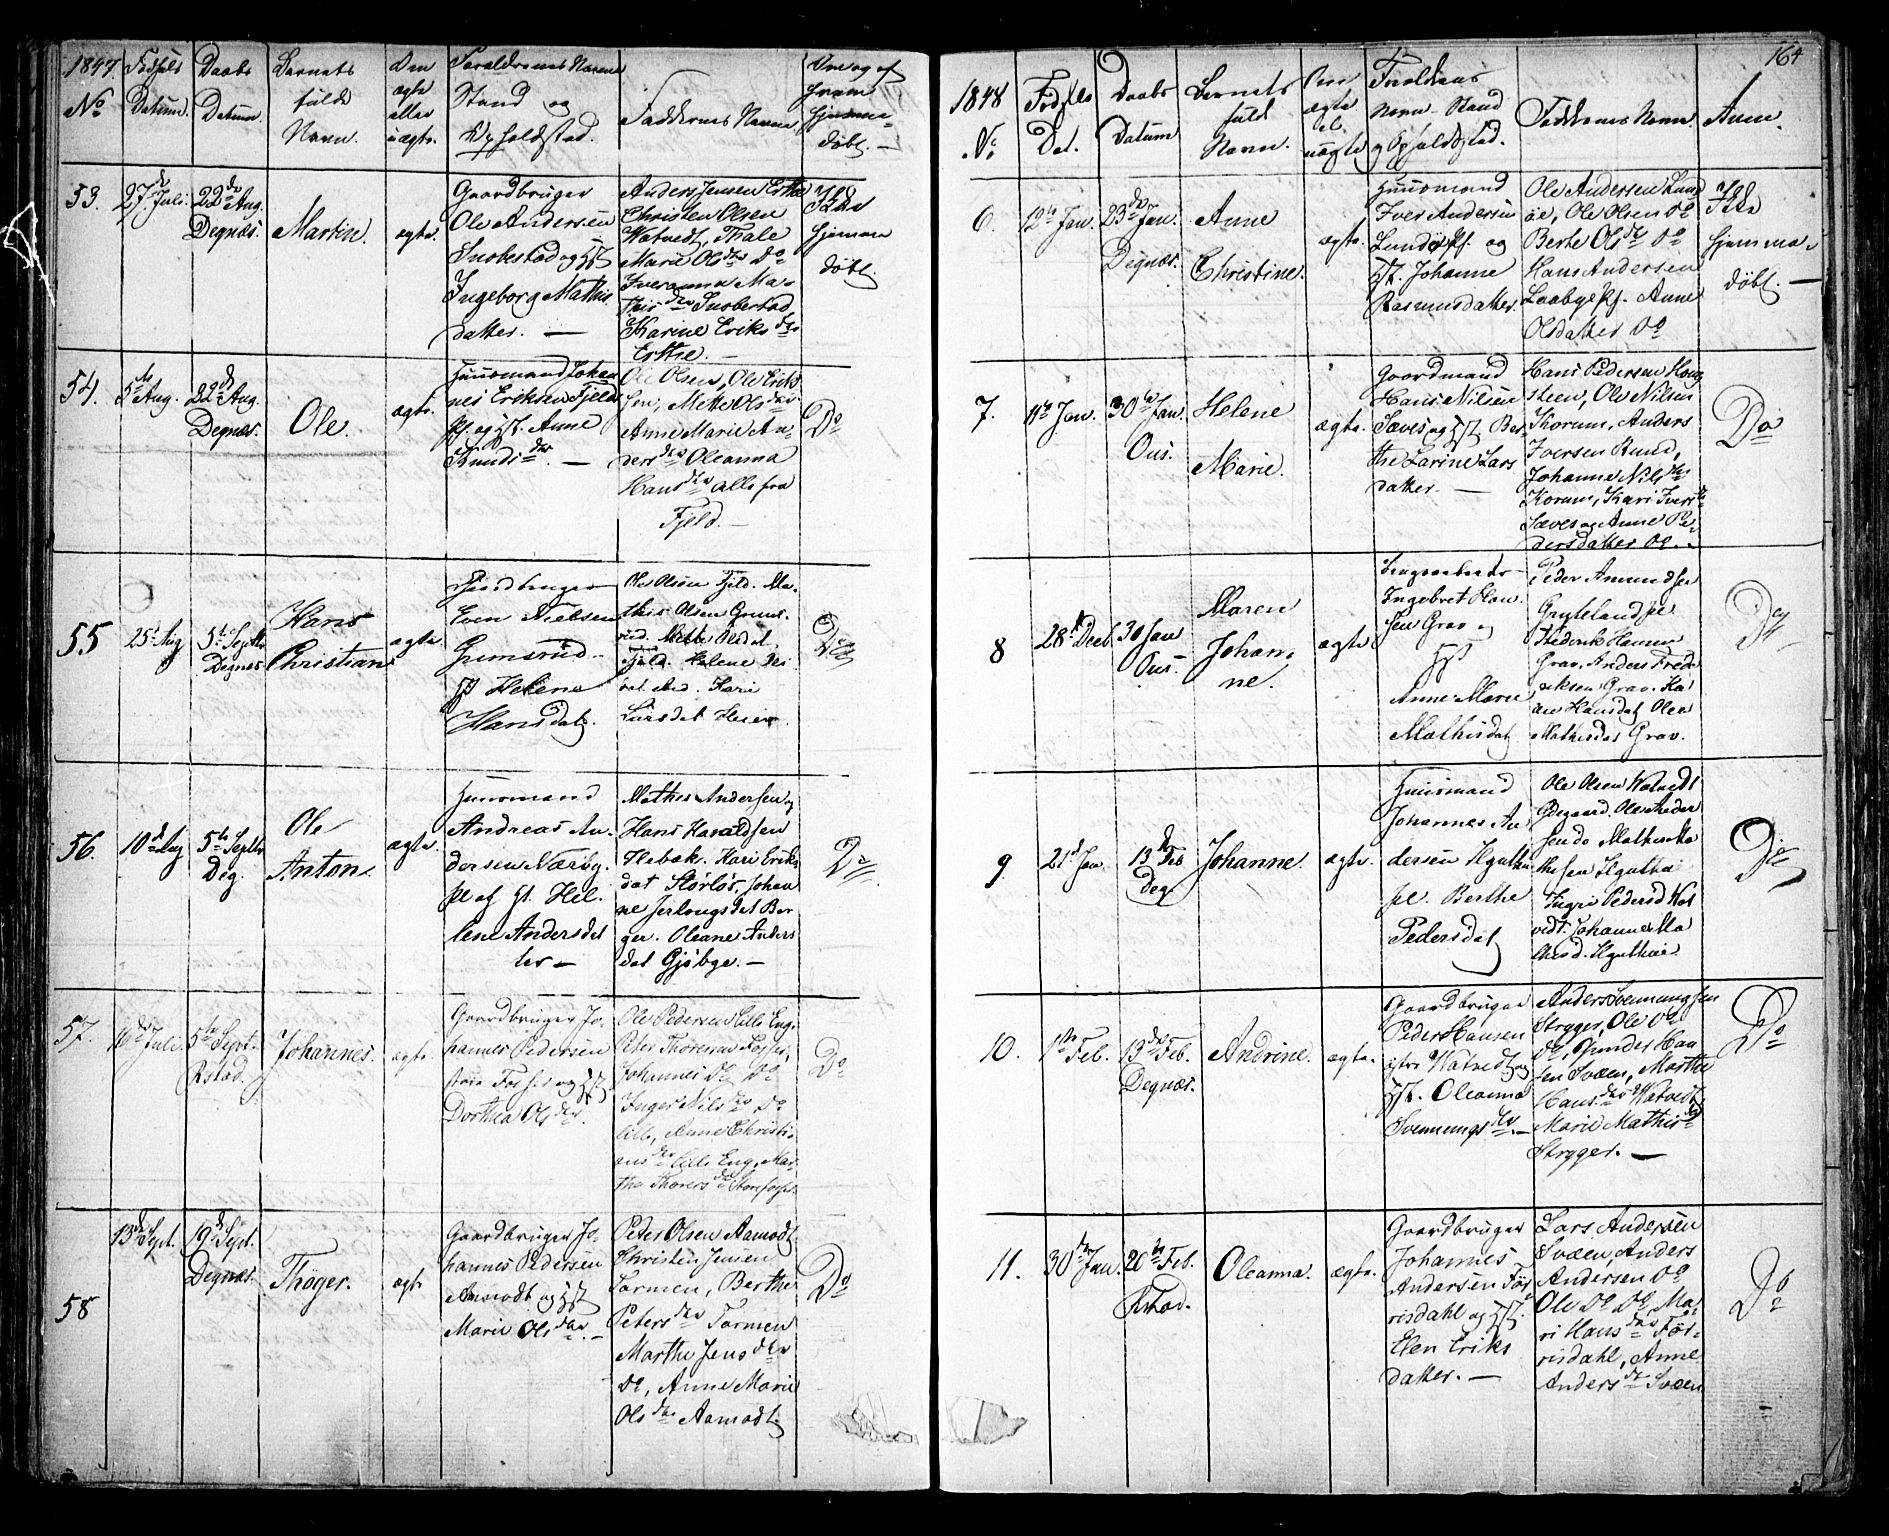 1847
No
Fødsels
Datum.
Daabs
Datum.
Barnets
fulde
Navn.
Om
ægte
eller
uægte.
Forældrenes Navne
Stand og
Opholdssted.
Faddernes Navne.
Om og af
hvem
hjemme-
døbt. —
53.
27de Juli.
22de Aug.
Degnæs.
Martin.
ægte.
Gaardbruger
Ole Andersen
Snobestad og Hst
Ingeborg Mathis
datter. —
Anders Jensen
Christen Olsen
Watvedt, Thale
Marie Olsder Do
Iveranna Ma-
thisder Snobestad
Karine Eriksder
Ikke
hjemme
døbt.
54.
5te Aug.
22de Aug.
Degnæs.
Ole.
ægte.
Huusmand Johan
nes Eriksen Fjeld
pl. og Hst. Anne
Knudsder. —
Ole Olsen, Ole Erik
sen, Mette Olsder
Anne Marie An-
dersder Oleanna
Hansder alle fra
Fjeld. —
Do
55
25de Aug
5te Septbr
Degnæs
Hans
Christian
ægte.
Gaardbruger
Even Nielsen
Grimsrud
Hst Helene
Hansdat.
Ole Olsen Fjeld. Ma-
this Olsen Grims-
rud. Mette Olsdat
Fjeld. Helene
Kari
Larsdat
Do
56.
10de Aug
5te Septbr
Deg.
Ole
Anton
ægte.
Huusmand
Andreas An-
dersen Nærby
pl og Hst. Hel-
lene Andersdat
ter —
Mathis Andersen og
Hans Haraldsen
Hebæk. Kari Eriks
dat Storløs. Johan
ne
ger. Oleane Anders
dat Gjøbye. —
Do
57.
16de Juli.
5te Sept.
Rstad.
Johannes.
ægte.
Gaardbruger Jo-
hannes Pedersen
store Fosser og Hst
Dorthea Olsder.
Ole Pedersen Lille Eng,
Peter Thoresen
Johannes Do Do
Inger Nilsder Do
lille, Anne Christi-
ansder Lille Eng, Mar-
the Thoresder Storefosser
Do
58
13de Sept.
19de Sept.
Degnæs.
Thøger.
ægte
Gaardbruger Jo-
hannes Pedersen
Aamodt og Hst
Marie Olsder. —
Peter Olsen Aamodt.
Christen Jensen
Tormen, Berthe
Petersder Tormen
Marthe Jensder
Do, Anne Marie
Olsder Aamodt.
Do
164
1848
No.
Fødsels
Dat.
Daabs
Datum
Barnets
fuld
Navn.
Om
ægte
el.
uægte
Forældrens
Navn. Stand
og Opholdssted.
Faddernes Navn.
Anm.
6.
12te Jan.
23de Jan.
Degnæs.
Anne
Christine.
ægte.
Huusmand
Iver Andersen
Lundøe pl. og
Hst. Johanne
Rasmusdatter.
Ole Andersen Lund
øe, Ole Olsen Do
Berte Olsder Do
Hans Andersen
Laabye pl. Anne
Olsdatter Do
Ikke
hjemme-
døbt. —
7.
11te Jan.
30te Jan.
Ous.
Helene
Marie.
ægte.
Gaardmand
Hans Nilsen
Sæves og Hst Ber-
the Larine Lars
datter. —
Hans Pedersen Haug
steen, Ole Nilsen
Korum, Anders
Iversen Rund,
Johanne Nilsder
Korum, Kari Iversder
Sæves og Anne Pe-
dersdatter Do. —
Do
8
28de Decb
30 Jan
Ous —
Maren
Johan-
ne.
ægte
Ingebret Han
sen Grav og
Hst
Anne Marie
Mathisdat
Peder Amundsen
Gryteland pl
Frederik Hemm
Grav. Anders Frede
riksen Grav. Ka
ren Hansdat Olea
Mathisdat Grav.
Do
9
21de Jan
13de Feb
Deg.
Johanne.
ægte.
Huusmand
Johannes An
dersen
pl. Berthe
Pedersdat
Ole Olsen Watvedt
Ødegaard Ole Ander
sen do Mathis Ma
thesen
Ingri Pedersd Wat
vedt. Johanne Ma
thisd.
Do
10.
1ste Feb.
13de Feb.
Degnæs.
Andrine.
ægte.
Gaardbruger
Peder Hansen
østre Watvedt og
Hst. Oleanna
Svenningsder. —
Anders Svenningsen
Stryger, Ole Do
Do, Gunder Han
sen Svæen, Marthe
Hansder Watvedt
Marie Mathisder
Strygger. —
Do
11.
30te Jan.
20de Feb.
Rstad.
Oleanna.
ægte.
Gaardbruger
Johannes
Andersen Før-
risdahl og Hst.
Elen Eriks
datter. —
Lars Andersen
Svæen, Anders
Andersen Do,
Ole Do Do, Ma-
ri Hansder Før-
risdahl, Anne
Andersder Svæen
Do